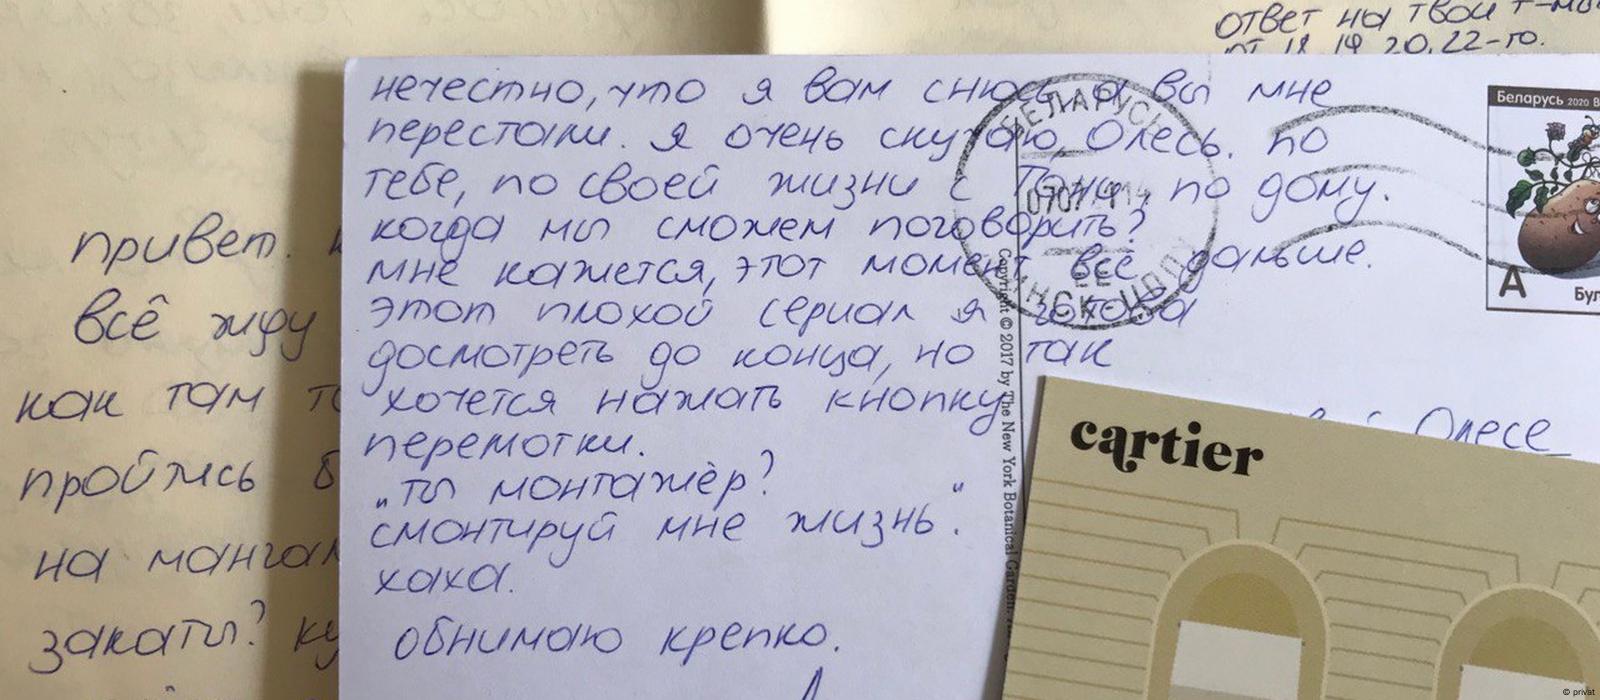 ответ на твои т-мы
от 18, 19, 20, 22-го.
привет.
всё жду
как там
пройтись
на мангал
закаты?
нечестно, что я вам снюсь а вы мне
перестали. я очень скучаю, Олесь. по
тебе, по своей жизни с по дому.
когда мы сможем поговорить?
мне кажется, этот момент всё дальше.
этот плохой сериал я готова
досмотреть до конца, но так
хочется нажать кнопку
перемотки.
„ты монтажёр?
смонтируй мне жизнь“.
хаха.
обнимаю крепко.
БЕЛАРУСЬ
МИНСК
Copyright © 2017 by The New York Botanical Garden.
Беларусь 2020
A
Бул
Олесе
cartier
© privat